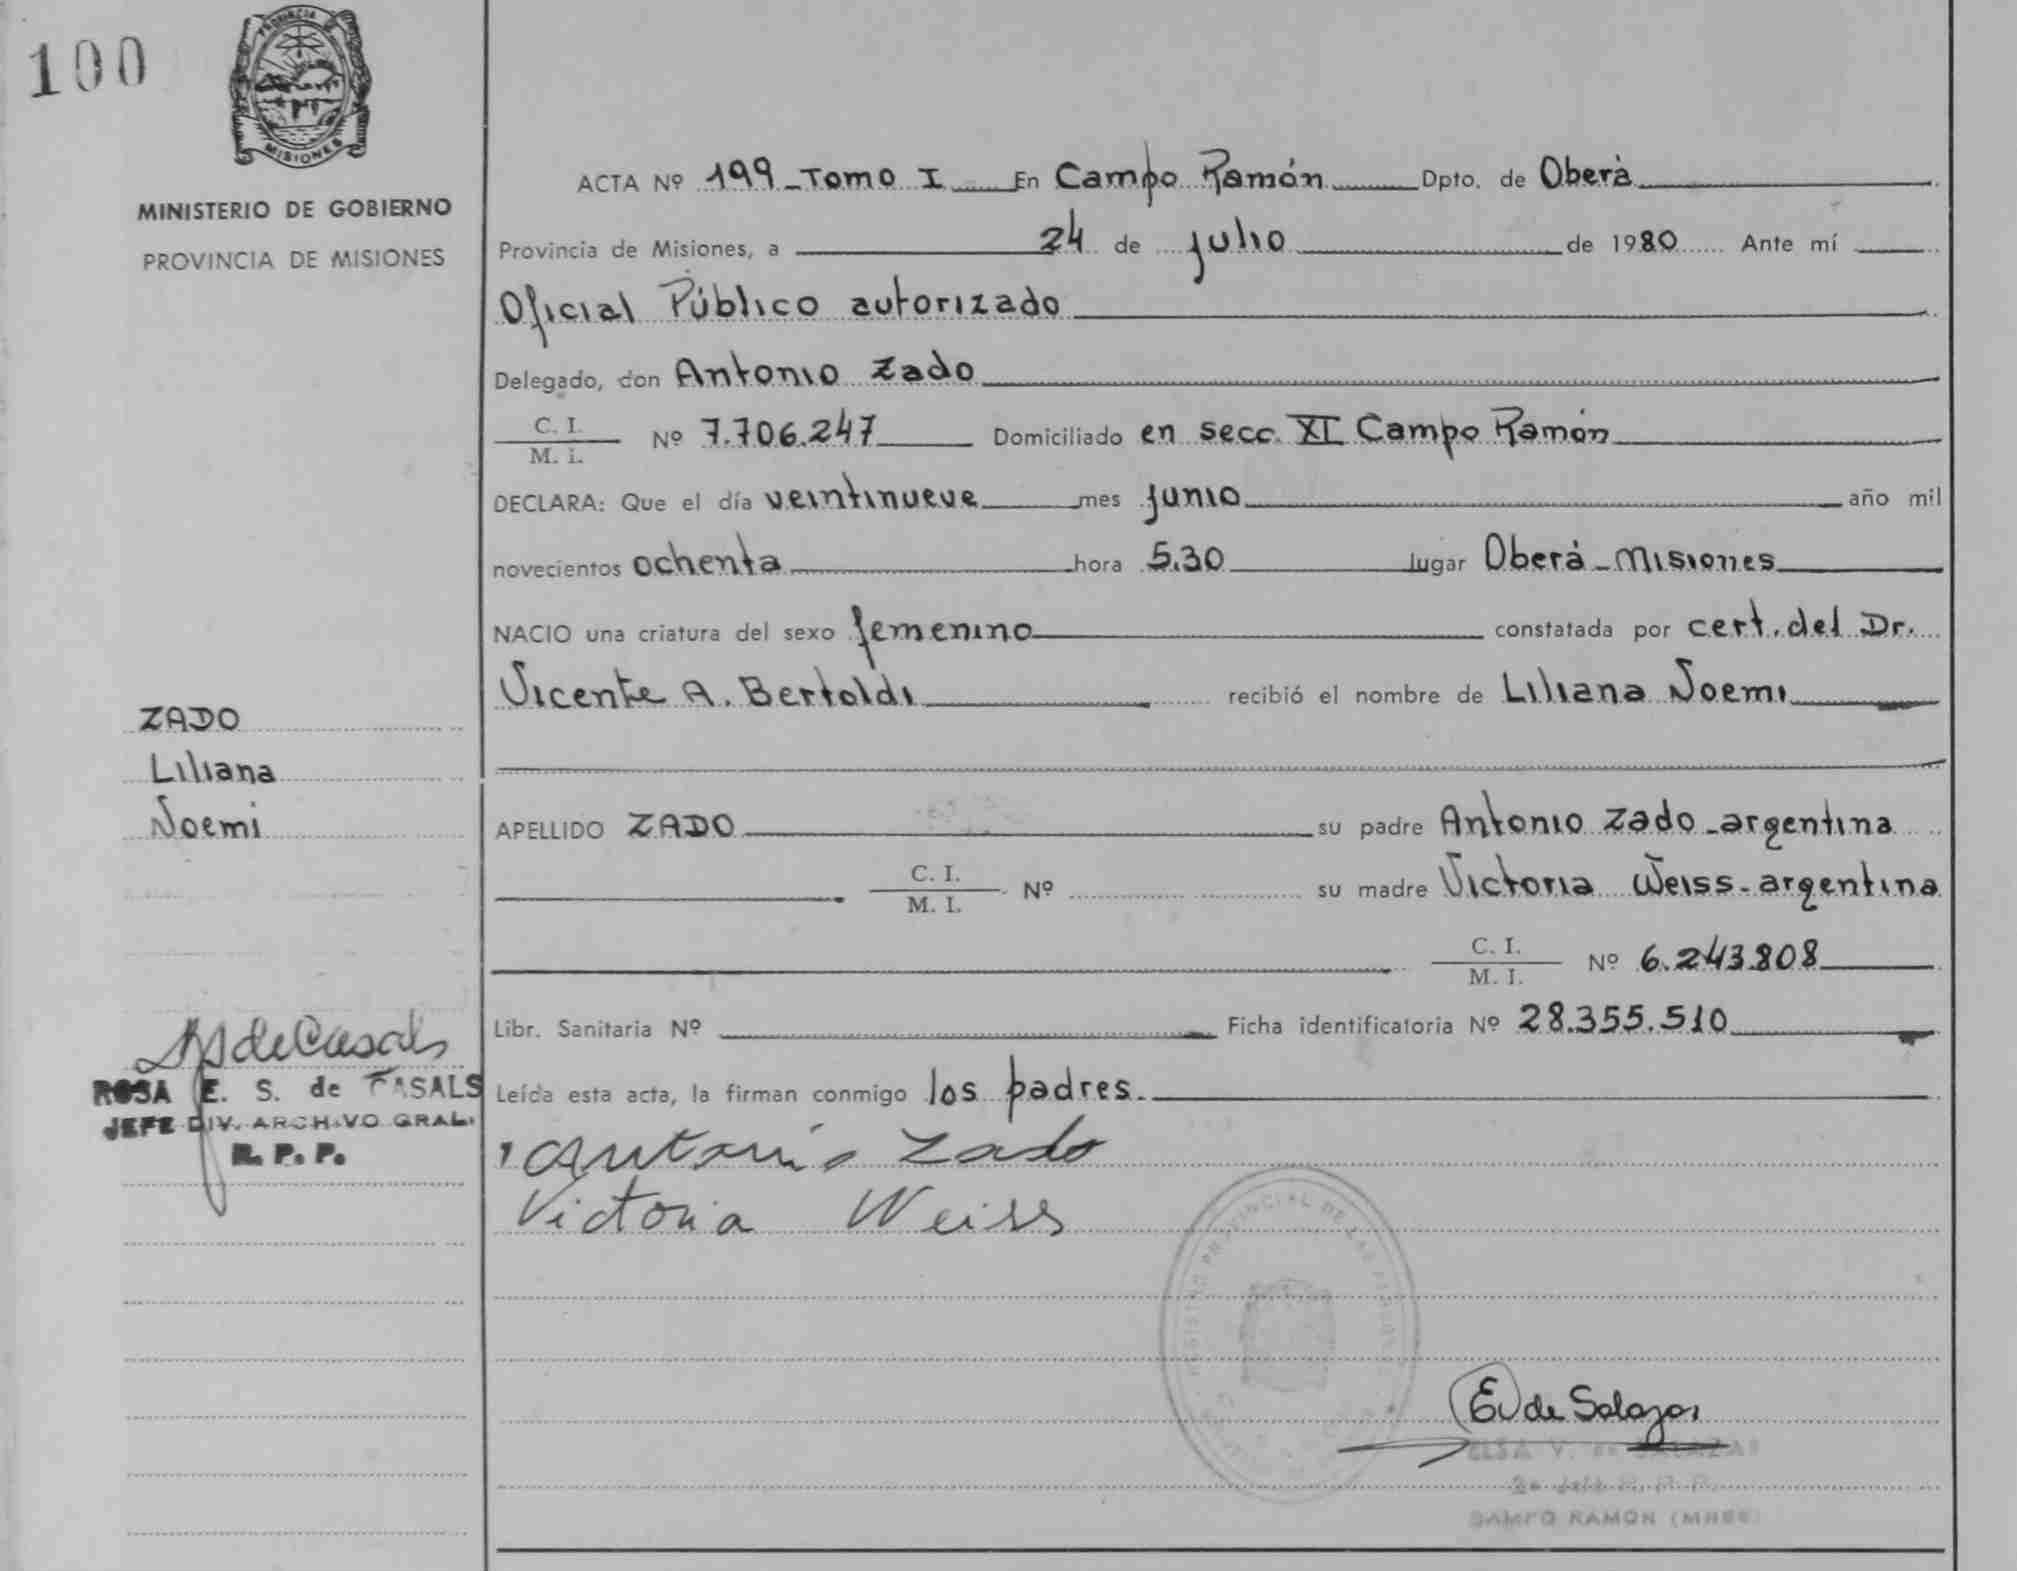 100
PROVINCIA DE
MISIONES
MINISTERIO DE GOBIERNO
PROVINCIA DE MISIONES
ZADO
Liliana
Noemi
ROSA E. S. de CASALS
JEFE DIV. ARCHIVO GRAL.
R. P. P.
ACTA Nº 199 - Tomo I En Campo Ramón Dpto. de Oberá
Provincia de Misiones, a 24 de julio de 1980 Ante mí
Oficial Público autorizado
Delegado, don Antonio Zado
C. I.
M. I. Nº 7.706.247 Domiciliado en secc. XI Campo Ramón
DECLARA: Que el día veintinueve mes junio año mil
novecientos ochenta hora 5.30 lugar Oberá - Misiones
NACIO una criatura del sexo femenino constatada por cert. del Dr.
Vicente A. Bertoldi recibió el nombre de Liliana Noemi
APELLIDO ZADO su padre Antonio Zado - argentina
C. I.
M. I. Nº su madre Victoria Weiss - argentina
C. I.
M. I. Nº 6.243.808
Libr. Sanitaria Nº Ficha identificatoria Nº 28.355.510
Leída esta acta, la firman conmigo los padres.
Antonio Zado
Victoria Weiss
REGISTRO PROVINCIAL DE LAS
EV de Salazar
ELSA V. de SALAZAR
CAMPO RAMON (MNES)